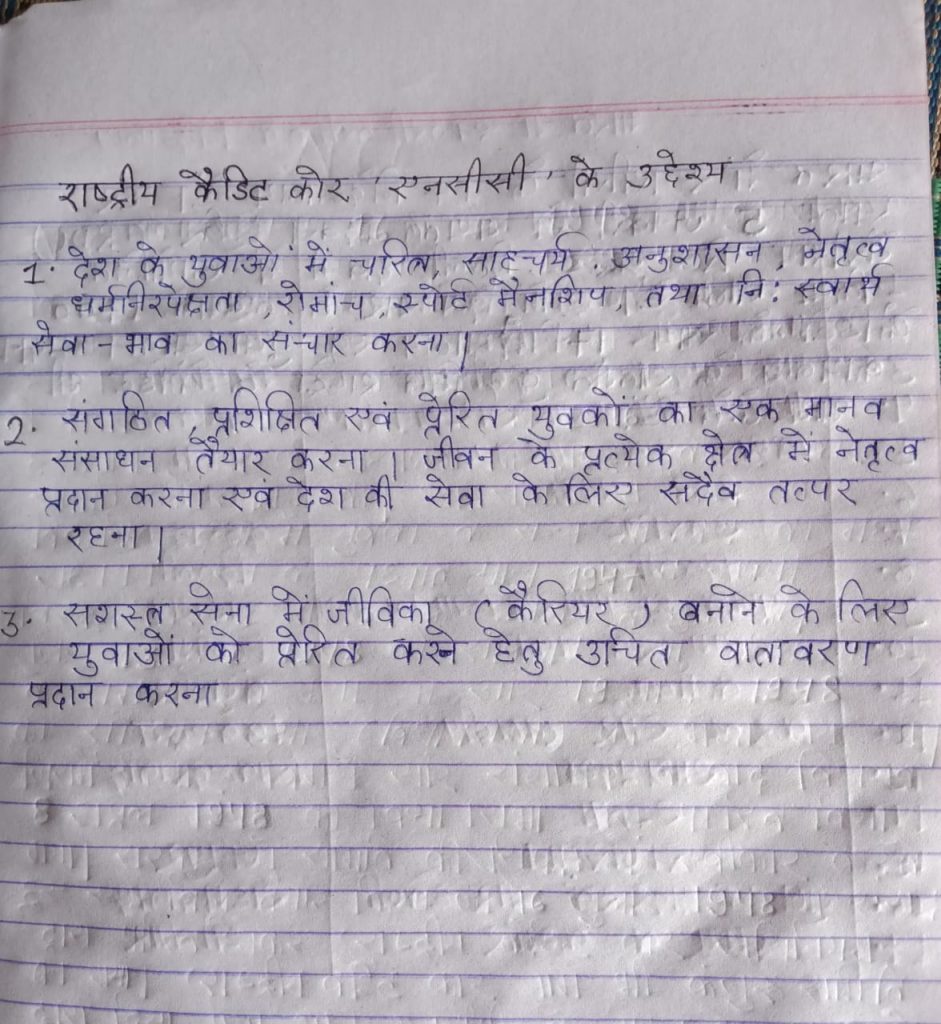 राष्ट्रीय कैडिट कोर 'एनसीसी' के उद्देश्य
1. देश के युवाओं में चरित्र, साहचर्य, अनुशासन, नेतृत्व
धर्मनिरपेक्षता, रोमांच, स्पोर्ट मैनशिप, तथा नि: स्वार्थ
सेवा-भाव का संचार करना।
2. संगठित, प्रशिक्षित एवं प्रेरित युवकों का एक मानव
संसाधन तैयार करना। जीवन के प्रत्येक क्षेत्र में नेतृत्व
प्रदान करना एवं देश की सेवा के लिए सदैव तत्पर
रहना।
3. सशस्त्र सेना में जीविका (कैरियर) बनाने के लिए
युवाओं को प्रेरित करने हेतु उचित वातावरण
प्रदान करना